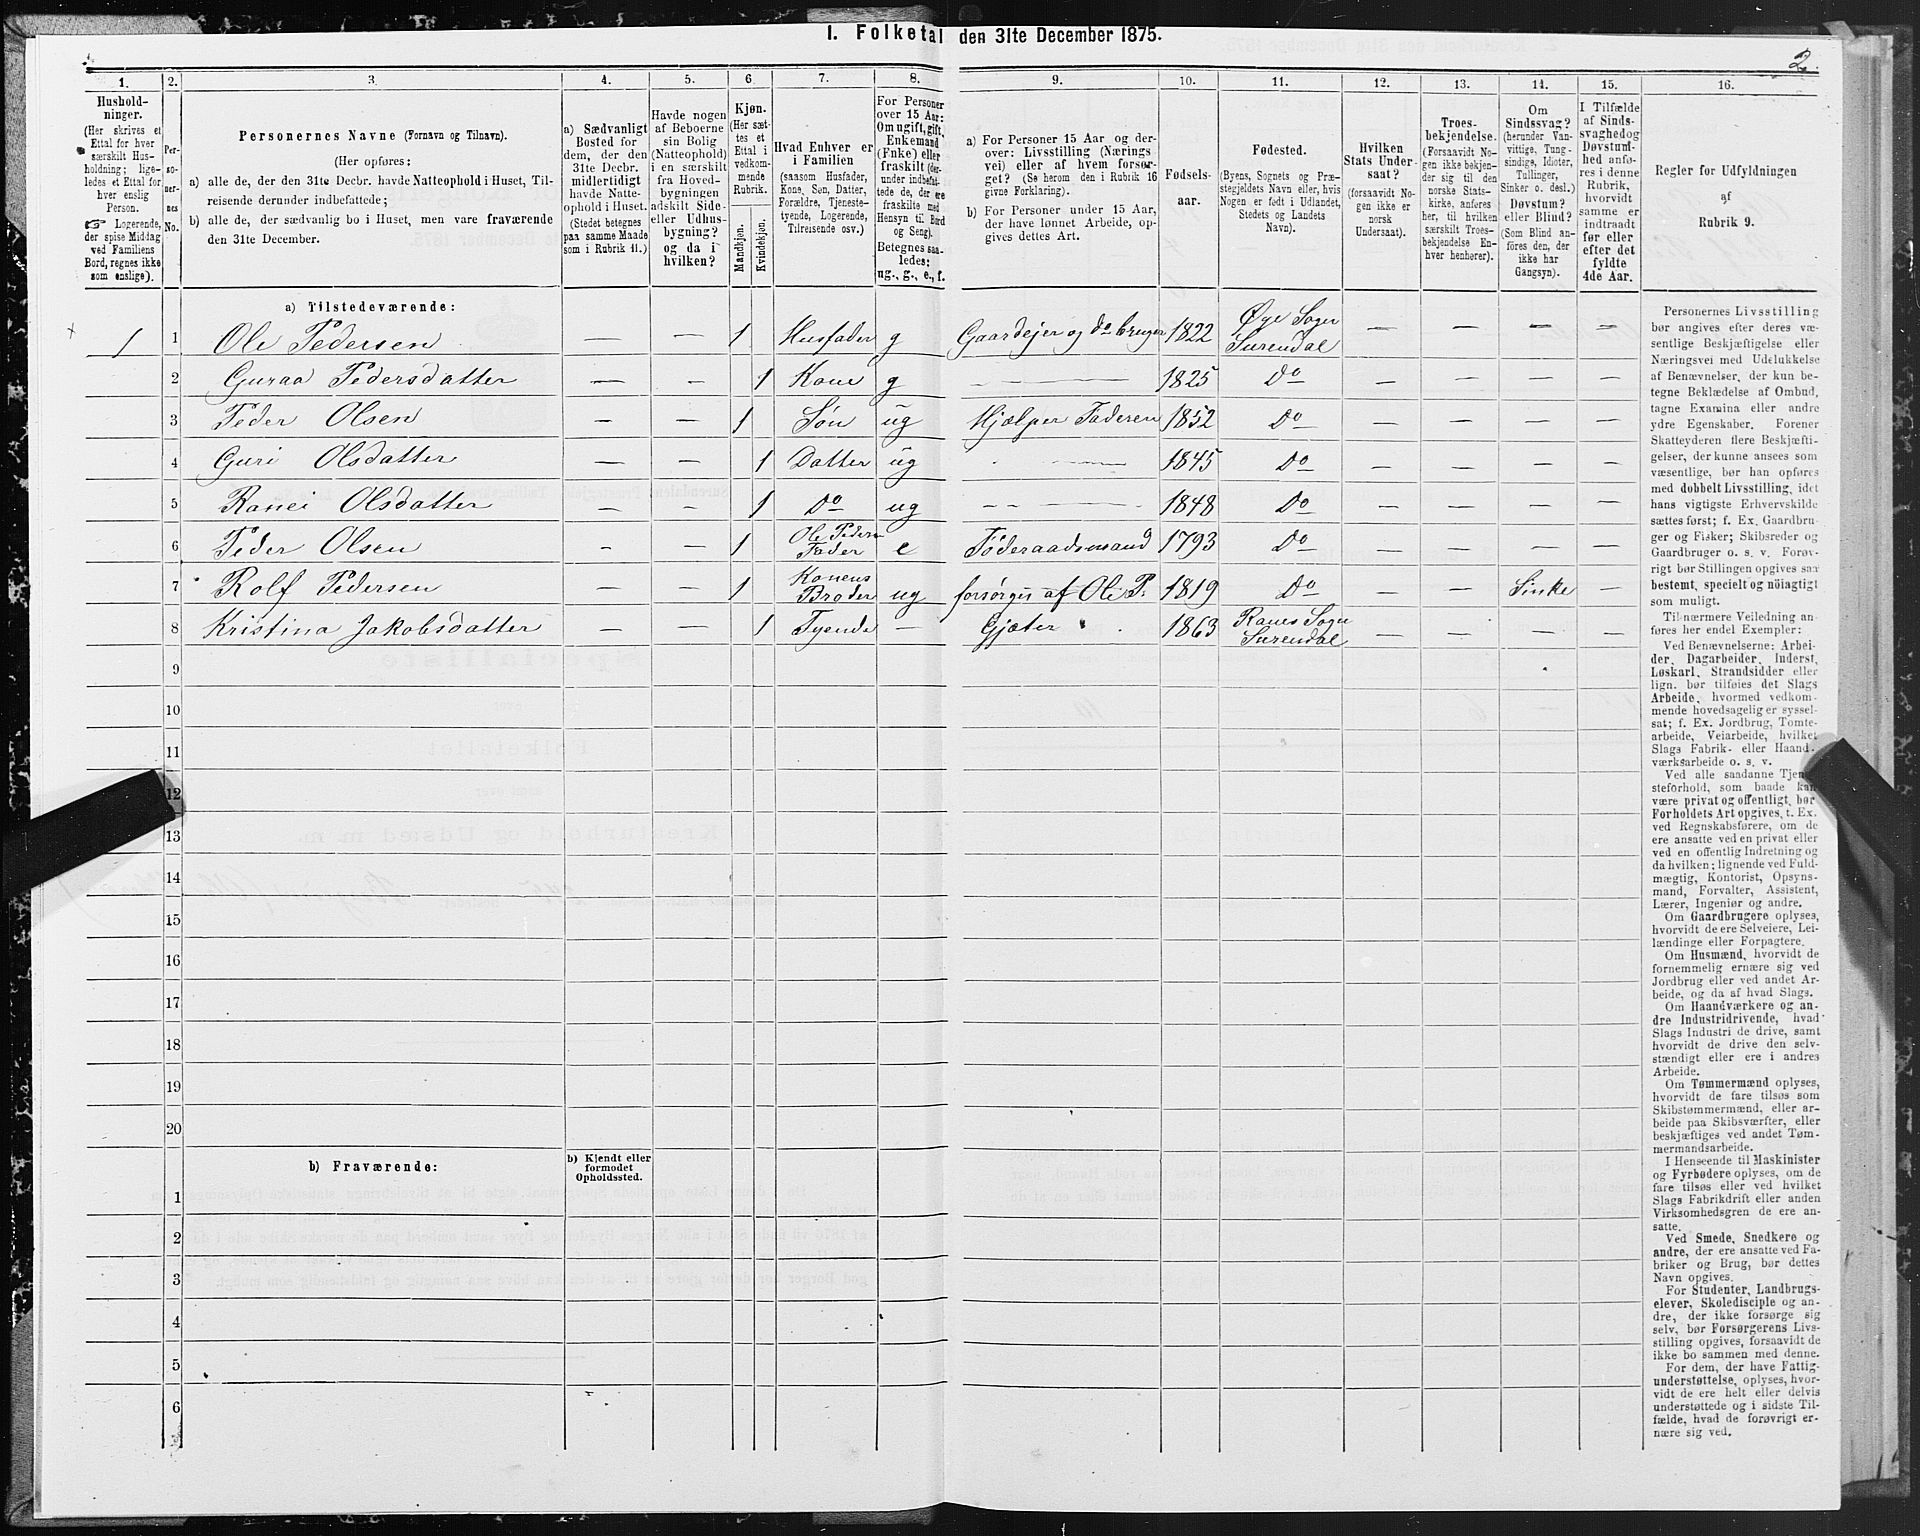 I. Folketal den 31te December 1875.
2.
1. 2. 3. 4. 5. 6. 7. 8. 9. 10. 11. 12. 13. 14. 15. 16.
Hushold-
ninger.
(Her skrives et
Ettal for hver
særskilt Hus-
holdning; lige-
ledes et Ettal for
hver enslig
Person.
☞ Logerende,
der spise Middag
ved Familiens
Bord, regnes ikke
som enslige).
Per-
soner-
nes
No.
Personernes Navne (Fornavn og Tilnavn).
(Her opføres:
a) alle de, der den 31te Decbr. havde Natteophold i Huset, Til-
reisende derunder indbefattede;
b) alle de, der sædvanlig bo i Huset, men vare fraværende
den 31te December.
a) Sædvanligt
Bosted for
dem, der den
31te Decbr.
midlertidigt
havde Natte-
ophold i Huset.
(Stedet betegnes
paa samme Maade
som i Rubrik 11.)
Havde nogen
af Beboerne
sin Bolig
(Natteophold)
i en særskilt
fra Hoved-
bygningen
adskilt Side-
eller Udhus-
bygning?
og da i
hvilken?
Kjøn.
(Her sæt-
tes et
Ettal i
vedkom-
mende
Rubrik.
Mandkjøn.
Kvindekjøn.
Hvad Enhver er
i Familien
(saasom Husfader,
Kone, Søn, Datter,
Forældre, Tjeneste-
tyende, Logerende,
Tilreisende osv.)
For Personer
over 15 Aar:
Om ugift, gift,
Enkemand
(Enke) eller
fraskilt (der-
under indbefat-
tede de, der ere
fraskilte med
Hensyn til Bord
og Seng).
Betegnes saa-
ledes:
ug., g., e., f.
a) For Personer 15 Aar og der-
over: Livsstilling (Nærings-
vei) eller af hvem forsør-
get? (Se herom den i Rubrik 16
givne Forklaring).
b) For Personer under 15 Aar,
der have lønnet Arbeide, op-
gives dettes Art.
Fødsels-
aar.
Fødested.
(Byens, Sognets og Præ-
stegjeldets Navn eller, hvis
Nogen er født i Udlandet,
Stedets og Landets
Navn).
Hvilken
Stats Under-
saat?
(forsaavidt No-
gen ikke er
norsk
Undersaat).
Troes-
bekjendelse.
(Forsaavidt No-
gen ikke bekjen-
der sig til den
norske Stats-
kirke, anføres
her, til hvilken
særskilt Troes-
bekjendelse En-
hver henhører).
Om
Sindssvag?
(herunder Van-
vittige, Tung-
sindige, Idioter,
Tullinger,
Sinker o. desl.)
Døvstum?
eller Blind?
(Som Blind an-
føres den, der
ikke har
Gangsyn).
I Tilfælde
af Sinds-
svaghed og
Døvstum-
hed anfø-
res i denne
Rubrik,
hvorvidt
samme er
indtraadt
før eller
efter det
fyldte
4de Aar.
Regler for Udfyldningen
af
Rubrik 9.
a) Tilstedeværende:
x 1 1 Ole Pedersen — — 1 Husfader g Gaardejer og do bruger 1822 Øye Sogn Surendal — — — —
2 Guraa Pedersdatter — — 1 Kone g — 1825 Do — — — —
3 Peder Olsen — — 1 Søn ug Hjælper Faderen 1852 Do — — — —
4 Guri Olsdatter — — 1 Datter ug — 1845 Do — — — —
5 Ranei Olsdatter — — 1 Do ug — 1848 Do — — — —
6 Peder Olsen — — 1 Ole Peders Fader e Føderaadsmand 1793 Do — — — —
7 Rolf Pedersen 1 Konens Broder ug forsørges af Ole P. 1819 Do — — Sinke —
8 Kristina Jakobsdatter — — 1 Tyende — Gjæter 1863 Ranes Sogn Surendal — — — —
9
10
11
12
13
14
15
16
17
18
19
20
b) Fraværende:
b) Kjendt eller
formodet
Opholdssted.
1
2
3
4
5
6
Personernes Livsstilling
bør angives efter deres væ-
sentlige Beskjæftigelse eller
Næringsvei med Udelukkelse
af Benævnelser, der kun be-
tegne Beklædelse af Ombud,
tagne Examina eller andre
ydre Egenskaber. Forener
Skatteyderen flere Beskjæfti-
gelser, der kunne ansees som
væsentlige, bør han opføres
med dobbelt Livsstilling, idet
hans vigtigste Erhvervskilde
sættes først; f. Ex. Gaardbru-
ger og Fisker; Skibsreder og
Gaardbruger o. s. v. Forøv-
rigt bør Stillingen opgives saa
bestemt, specielt og nøiagtigt
som muligt.
Til nærmere Veiledning an-
føres her endel Exempler:
Ved Benævnelserne: Arbei-
der, Dagarbeider, Inderst,
Løskarl, Strandsidder eller
lign. bør tilføies det Slags
Arbeide, hvormed vedkom-
mende hovedsagelig er syssel-
sat; f. Ex. Jordbrug, Tomte-
arbeide, Veiarbeide, hvilket
Slags Fabrik- eller Haand-
værksarbeide o. s. v.
Ved alle saadanne Tjen-
steforhold, som baade kan
være privat og offentligt, bør
Forholdets Art opgives, t. Ex.
ved Regnskabsførere, om de
ere ansatte ved en privat eller
ved en offentlig Indretning og
da hvilken; lignende ved Fuld-
mægtig, Kontorist, Opsyns-
mand, Forvalter, Assistent,
Lærer, Ingeniør og andre.
Om Gaardbrugere oplyses,
hvorvidt de ere Selveiere, Lei-
lændinge eller Forpagtere.
Om Husmænd, hvorvidt de
fornemmelig ernære sig ved
Jordbrug eller ved andet Ar-
beide, og da af hvad Slags.
Om Haandværkere og an-
dre Industridrivende, hvad
Slags Industri de drive, samt
hvorvidt de drive den selv-
stændigt eller ere i andres
Arbeide.
Om Tømmermænd oplyses,
hvorvidt de fare tilsøs som
Skibstømmermænd, eller ar-
beide paa Skibsværfter, eller
beskjæftiges ved andet Tøm-
mermandsarbeide.
I Henseende til Maskinister
og Fyrbødere oplyses, om de
fare tilsøs eller ved hvilket
Slags Fabrikdrift eller anden
Virksomhedsgren de ere an-
satte.
Ved Smede, Snedkere og
andre, der ere ansatte ved Fa-
briker og Brug, bør dettes
Navn opgives.
For Studenter, Landbrugs-
elever, Skoledisciple og an-
dre, der ikke forsørge sig
selv, bør Forsørgerens Livs-
stilling opgives, forsaavidt de
ikke bo sammen med denne.
For dem, der have Fattig-
understøttelse, oplyses, hvor-
vidt de ere helt eller delvis
understøttede og i sidste Til-
fælde, hvad de forøvrigt er-
nære sig ved.